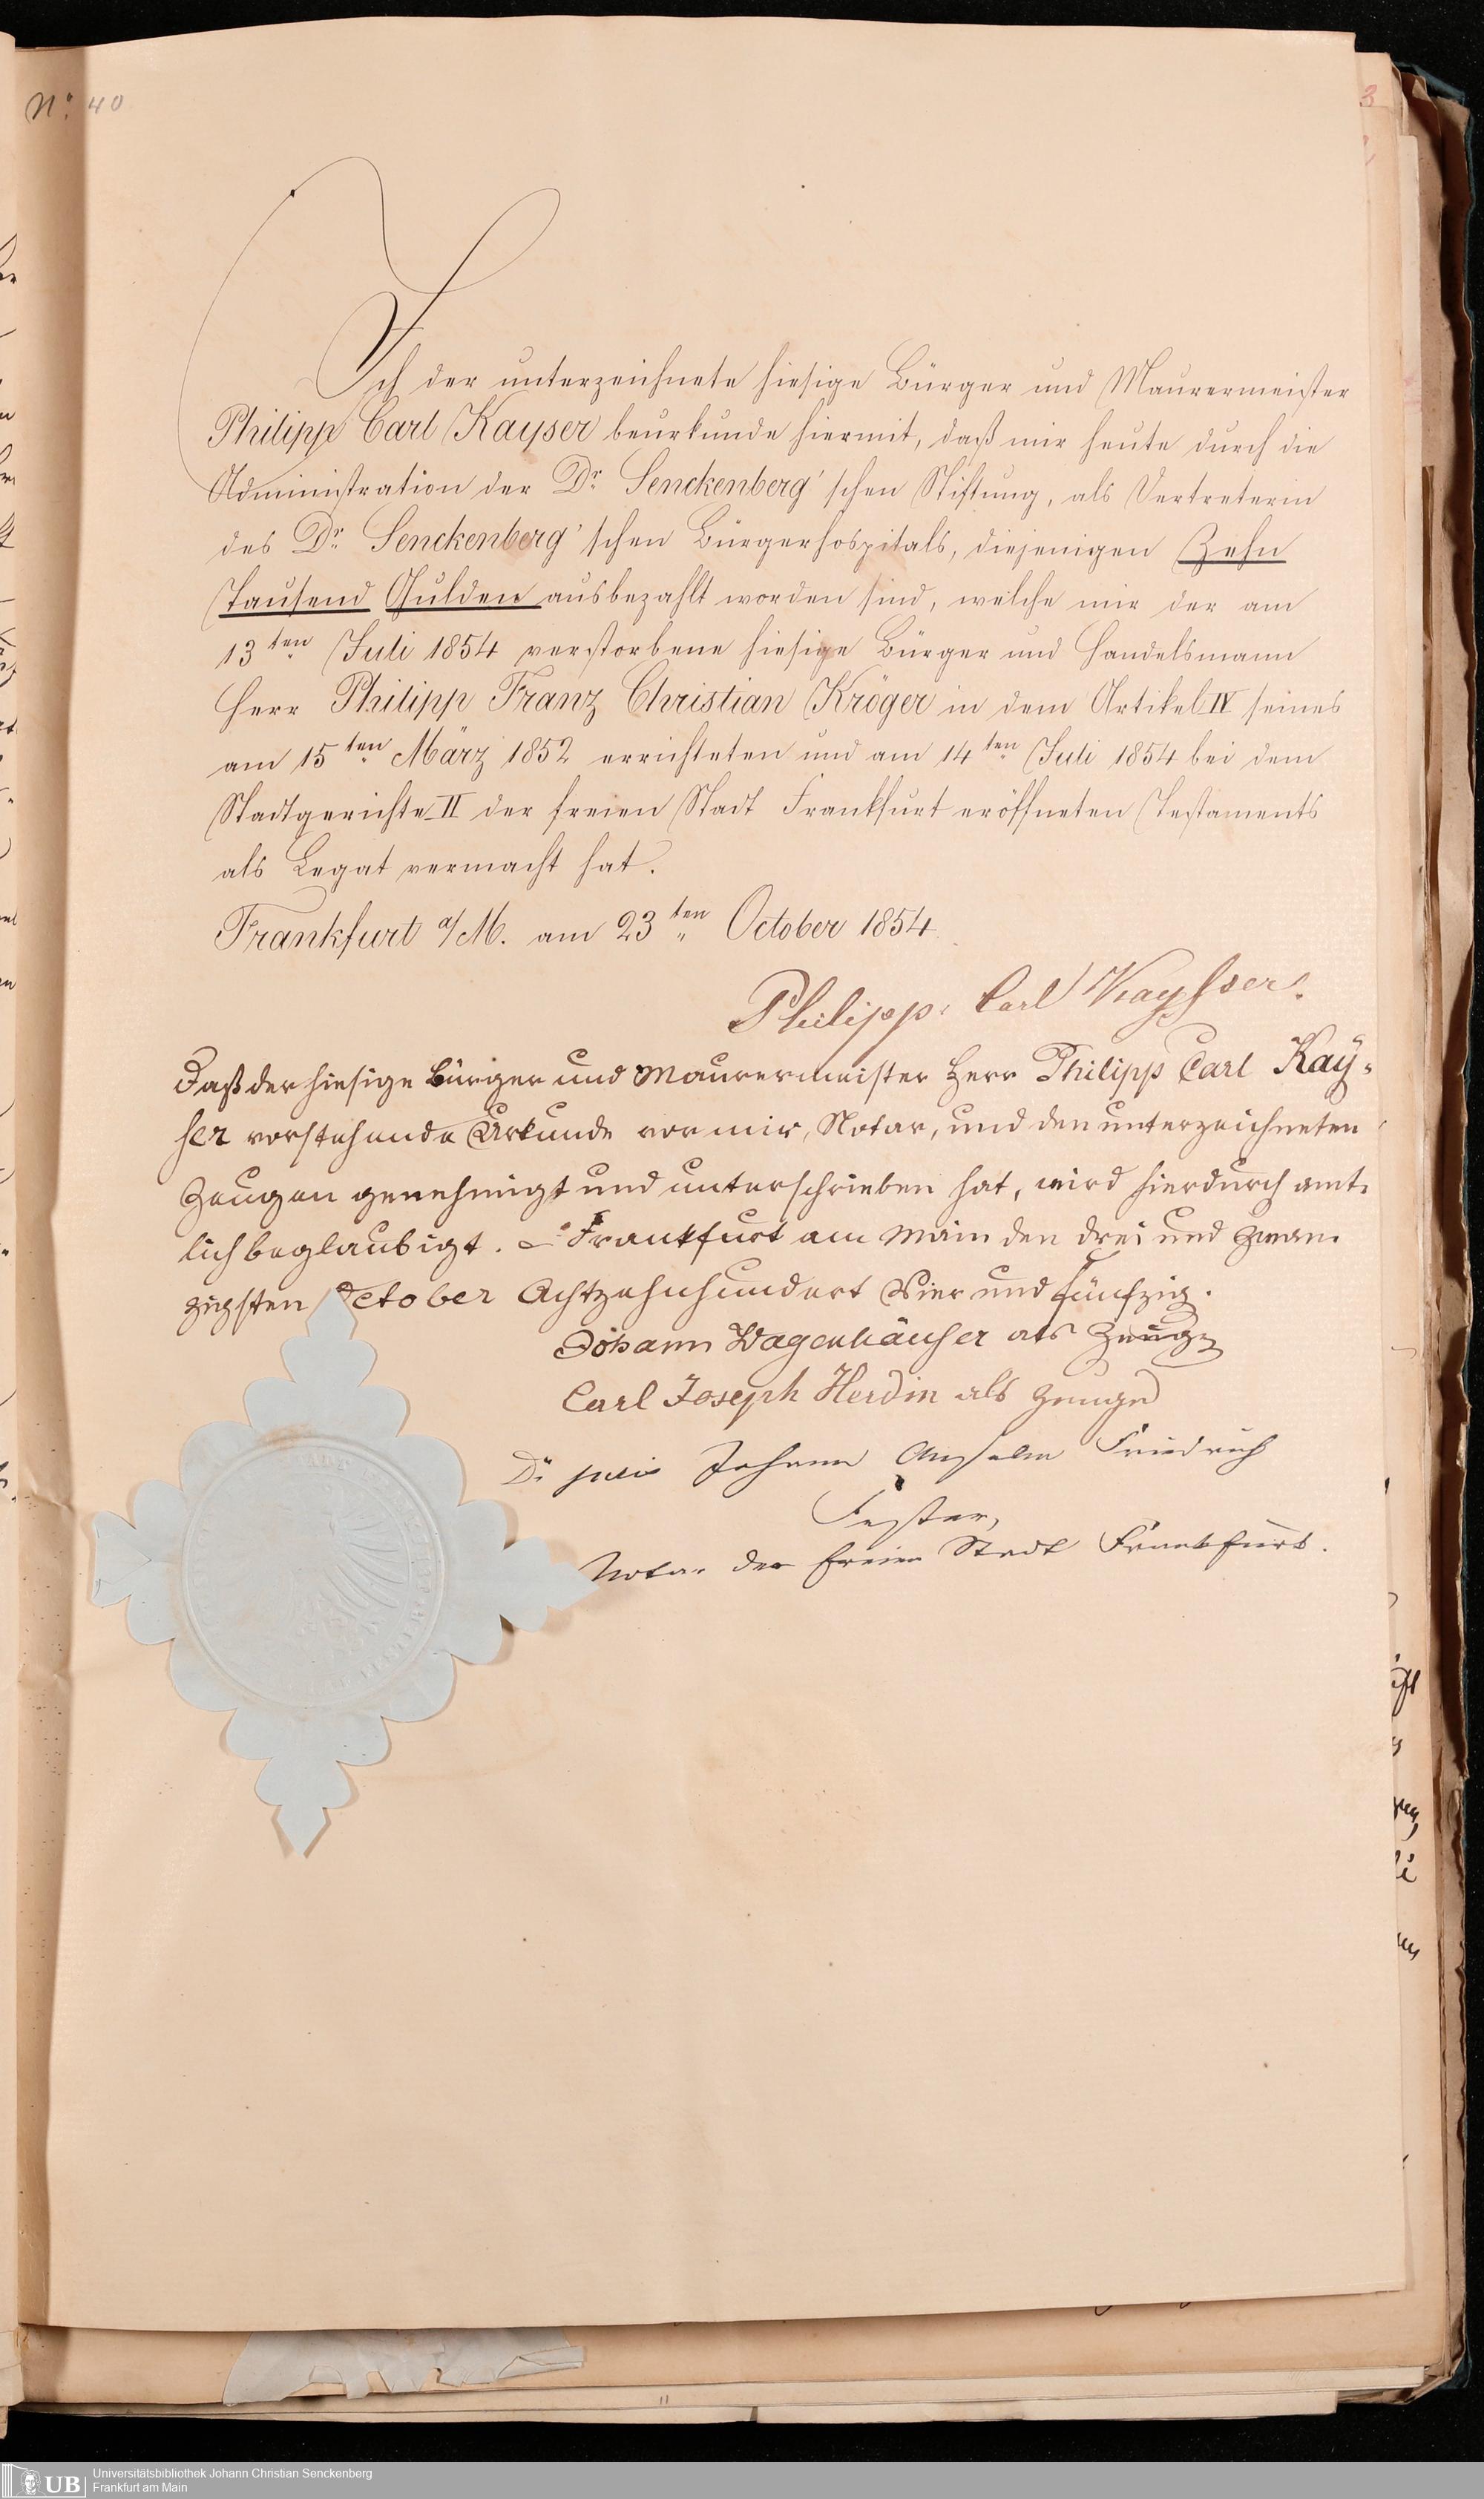 No. 40
Ich der unterzeichnete hiesige Bürger und Maurermeister
Philipp Carl Kayser beurkunde hiermit, daß mir heute durch die
Administration der Dr. Senckenberg'schen Stiftung, als Vertreterin
des Dr. Senckenberg'schen Bürgerhospitals, diejenigen Zehn
Tausend Gulden ausbezahlt worden sind, welche mir der am
13ten Juli 1854 verstorbene hiesige Bürger und Handelsmann
Herr Philipp Franz Christian Kröger in dem Artikel IV seines
am 15ten März 1852 errichteten und am 14ten Juli 1854 bei dem
Stadtgerichte II der freien Stadt Frankfurt eröffneten Testaments
als Legat vermacht hat.
Frankfurt a/M. am 23ten October 1854.
Philipp Carl Kaysser.
Daß der hiesige Bürger und Maurermeister Herr Philipp Carl Kay-
ser vorstehende Urkunde vor mir, Notar, und den unterzeichneten
Zeugen genehmigt und unterschrieben hat, wird hierdurch amt-
lich beglaubigt. – Frankfurt am Main den drei und zwan-
zigsten October Achtzehnhundert Vier und fünfzig.
Johann Wagenhäuser als Zeuge
Carl Joseph Herdin als Zeuge
Dr. juris Johann Anselm Friedrich
Fester,
Notar der freien Stadt Frankfurt.
UB
Universitätsbibliothek Johann Christian Senckenberg
Frankfurt am Main